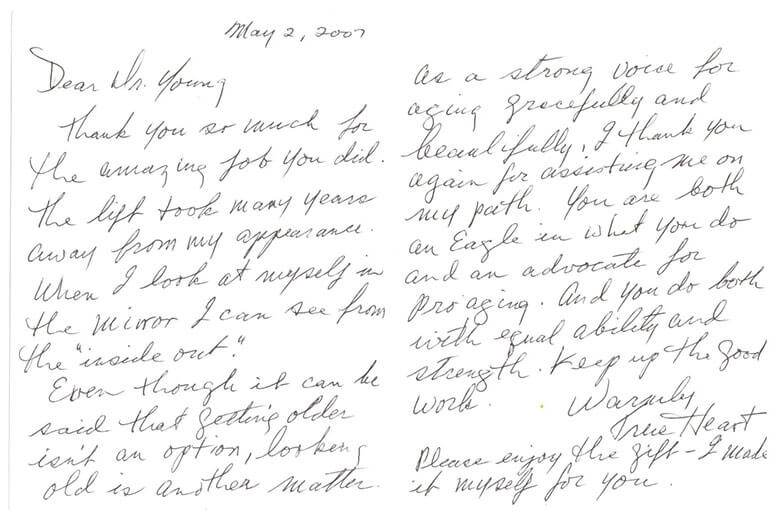 May 2, 2007
Dear Dr. Young
Thank you so much for
the amazing job you did.
The lift took many years
away from my appearance.
When I look at myself in
the mirror I can see from
the "inside out".
Even though it can be
said that getting older
isn't an option, looking
old is another matter.
as a strong voice for
aging gracefully and
beautifully, I thank you
again for assisting me on
my path. You are both
an Eagle in what you do
and an advocate for
Pro aging. And you do both
with equal ability and
strength. Keep up the good
work. Warmly
True Heart
Please enjoy the gift - I made
it myself for you.